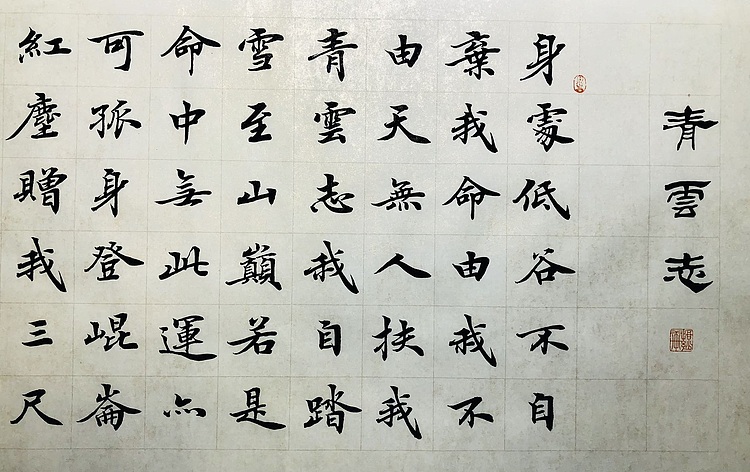 青雲志
身處低谷不自
棄我命由我不
由天無人扶我
青雲志我自踏
雪至山巔若是
命中無此運亦
可孤身登崐崙
紅塵贈我三尺